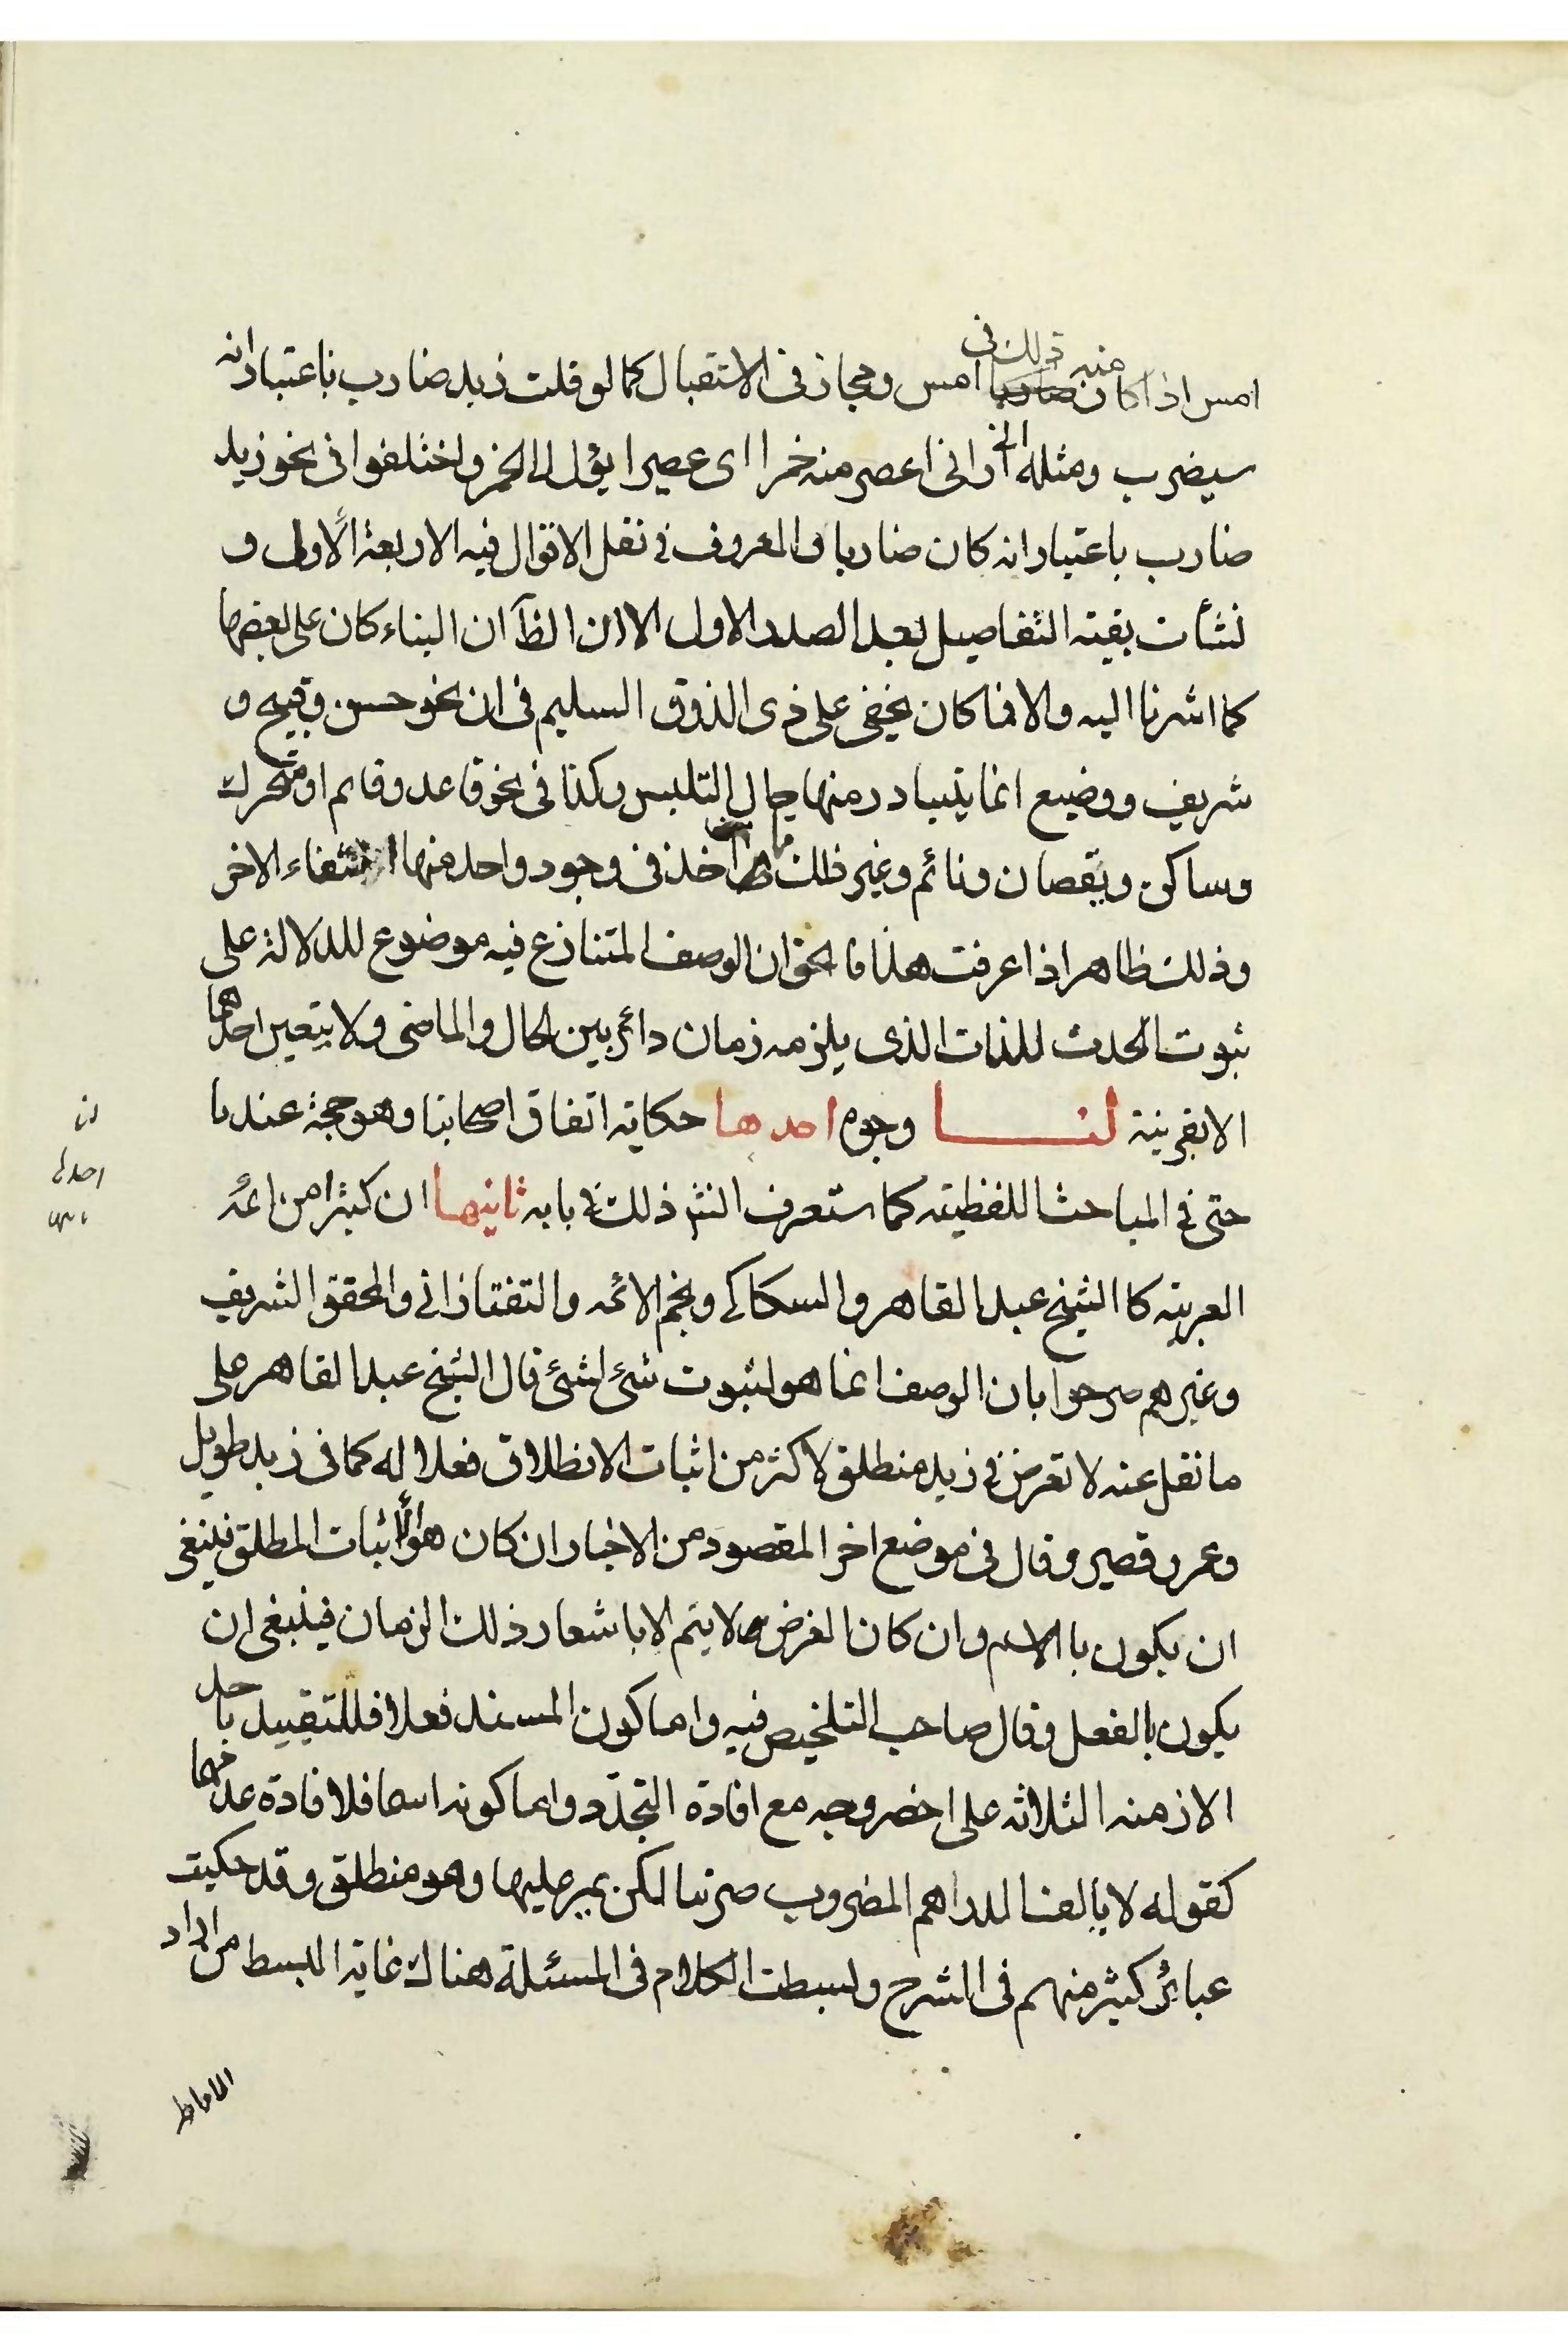 امس اذا كان منه ذلك فى امس ومجاز فى الاستقبال كما لو قلت زيد ضارب باعتبار انه
سيضرب ومثله انى ارانى اعصر منه خمرا اى عصيرا يؤل الى الخمر واختلفوا فى نحو زيد
ضارب باعتبار انه كان ضاربا والمعروف فى نقل الاقوال فيه الاربعة الاولى و
نشأت بقية التفاصيل بعد الصدر الاول الا ان الظ ان البناء كان على بعضها
كما اشرنا اليه والا فما كان يخفى على ذى الذوق السليم فى ان نحو حسن وقبيح و
شريف ووضيع انما يتبادر منها حال التلبس وكذا فى نحو قاعد وقايم او متحرك
وساكن ويقصان ونائم وغير ذلك مما اخذ فى وجود واحد منها انتفاء الاخر
وذلك ظاهر اذا عرفت هذا فالحق ان الوصف المتنازع فيه موضوع للدلالة على
ثبوت الحدث للذات الذى يلزمه زمان دائر بين الحال والماضى ولا يتعين احدهما
الا بقرينة لنا وجوه احدها حكاية اتفاق اصحابنا وهو حجة عندنا
حتى فى المباحث اللفظية كما ستعرف انش ذلك فى بابه ثانيها ان كثيرا من ائمة
العربية كا الشيخ عبد القاهر والسكاكى ونجم الائمه والتفتازانى والمحقق الشريف
وغيرهم صرحوا بان الوصف انما هو لثبوت شئ لشئ قال الشيخ عبد القاهر على
ما نقل عنه لا تعرض فى زيد منطلق لاكثر من اثبات الانطلاق فعلا له كما فى زيد طويل
وعمرو قصير وقال فى موضع اخر المقصود من الاخبار ان كان هو الاثبات المطلق فينبغى
ان يكون با الاسم وان كان الغرض لا يتم الا باشعار ذلك الزمان فينبغى ان
يكون بالفعل وقال صاحب التلخيص فيه واما كون المسند فعلا فللتقييد باحد
الازمنه الثلاثه على اخصر وجه مع افادة التجدّد واما كونه اسما فلافادة عدمهما
كقوله لا يالف الدراهم المضروب صرتنا لكن يمر عليها وهو منطلق وقد حكيت
عبائر كثير منهم فى الشرح وبسطت الكلام فى المسئلة هناك غاية البسط من اراد